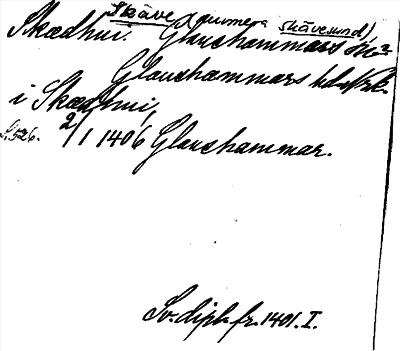 Skäve (numera Skävesund)
Skædhui. Glanshammars sn
Glanshammars hd
i Skædhui,
S. 526. 2/1 1406 Glanshammar.
Sv. dipl. fr. 1401. I.